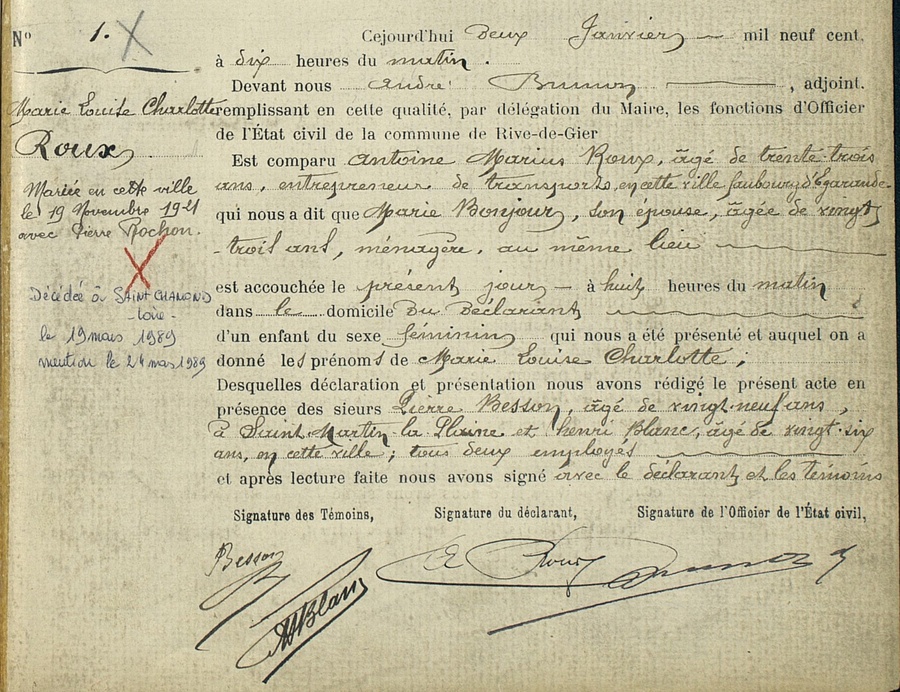 N° 1.
Marie Louise Charlotte
Roux
Mariée en cette ville
le 19 Novembre 1921
avec Pierre Rochon.
Décédée à SAINT CHAMOND
- Loire -
le 19 mars 1989
mention le 24 mars 1989
Cejourd'hui Deux Janvier mil neuf cent.
à dix heures du matin.
Devant nous André Brunon, adjoint.
remplissant en cette qualité, par délégation du Maire, les fonctions d'Officier
de l'État civil de la commune de Rive-de-Gier
Est comparu Antoine Marius Roux, âgé de trente-trois
ans, entrepreneur de transports, en cette ville faubourg d'Egarande
qui nous a dit que Marie Bonjour, son épouse, âgée de vingt
-trois ans, ménagère, au même lieu
est accouchée le présent jour — à huit heures du matin
dans le domicile Du Déclarant
d'un enfant du sexe féminin qui nous a été présenté et auquel on a
donné les prénoms de Marie Louise Charlotte ;
Desquelles déclaration et présentation nous avons rédigé le présent acte en
présence des sieurs Pierre Besson, âgé de vingt-neuf ans,
à Saint-Martin-la-Plaine et henri Blanc, âgé de vingt-six
ans, en cette ville ; tous deux employés
et après lecture faite nous avons signé avec le déclarant et les témoins
Signature des Témoins, Signature du déclarant, Signature de l'Officier de l'État civil,
Besson Roux Brunon
Blanc